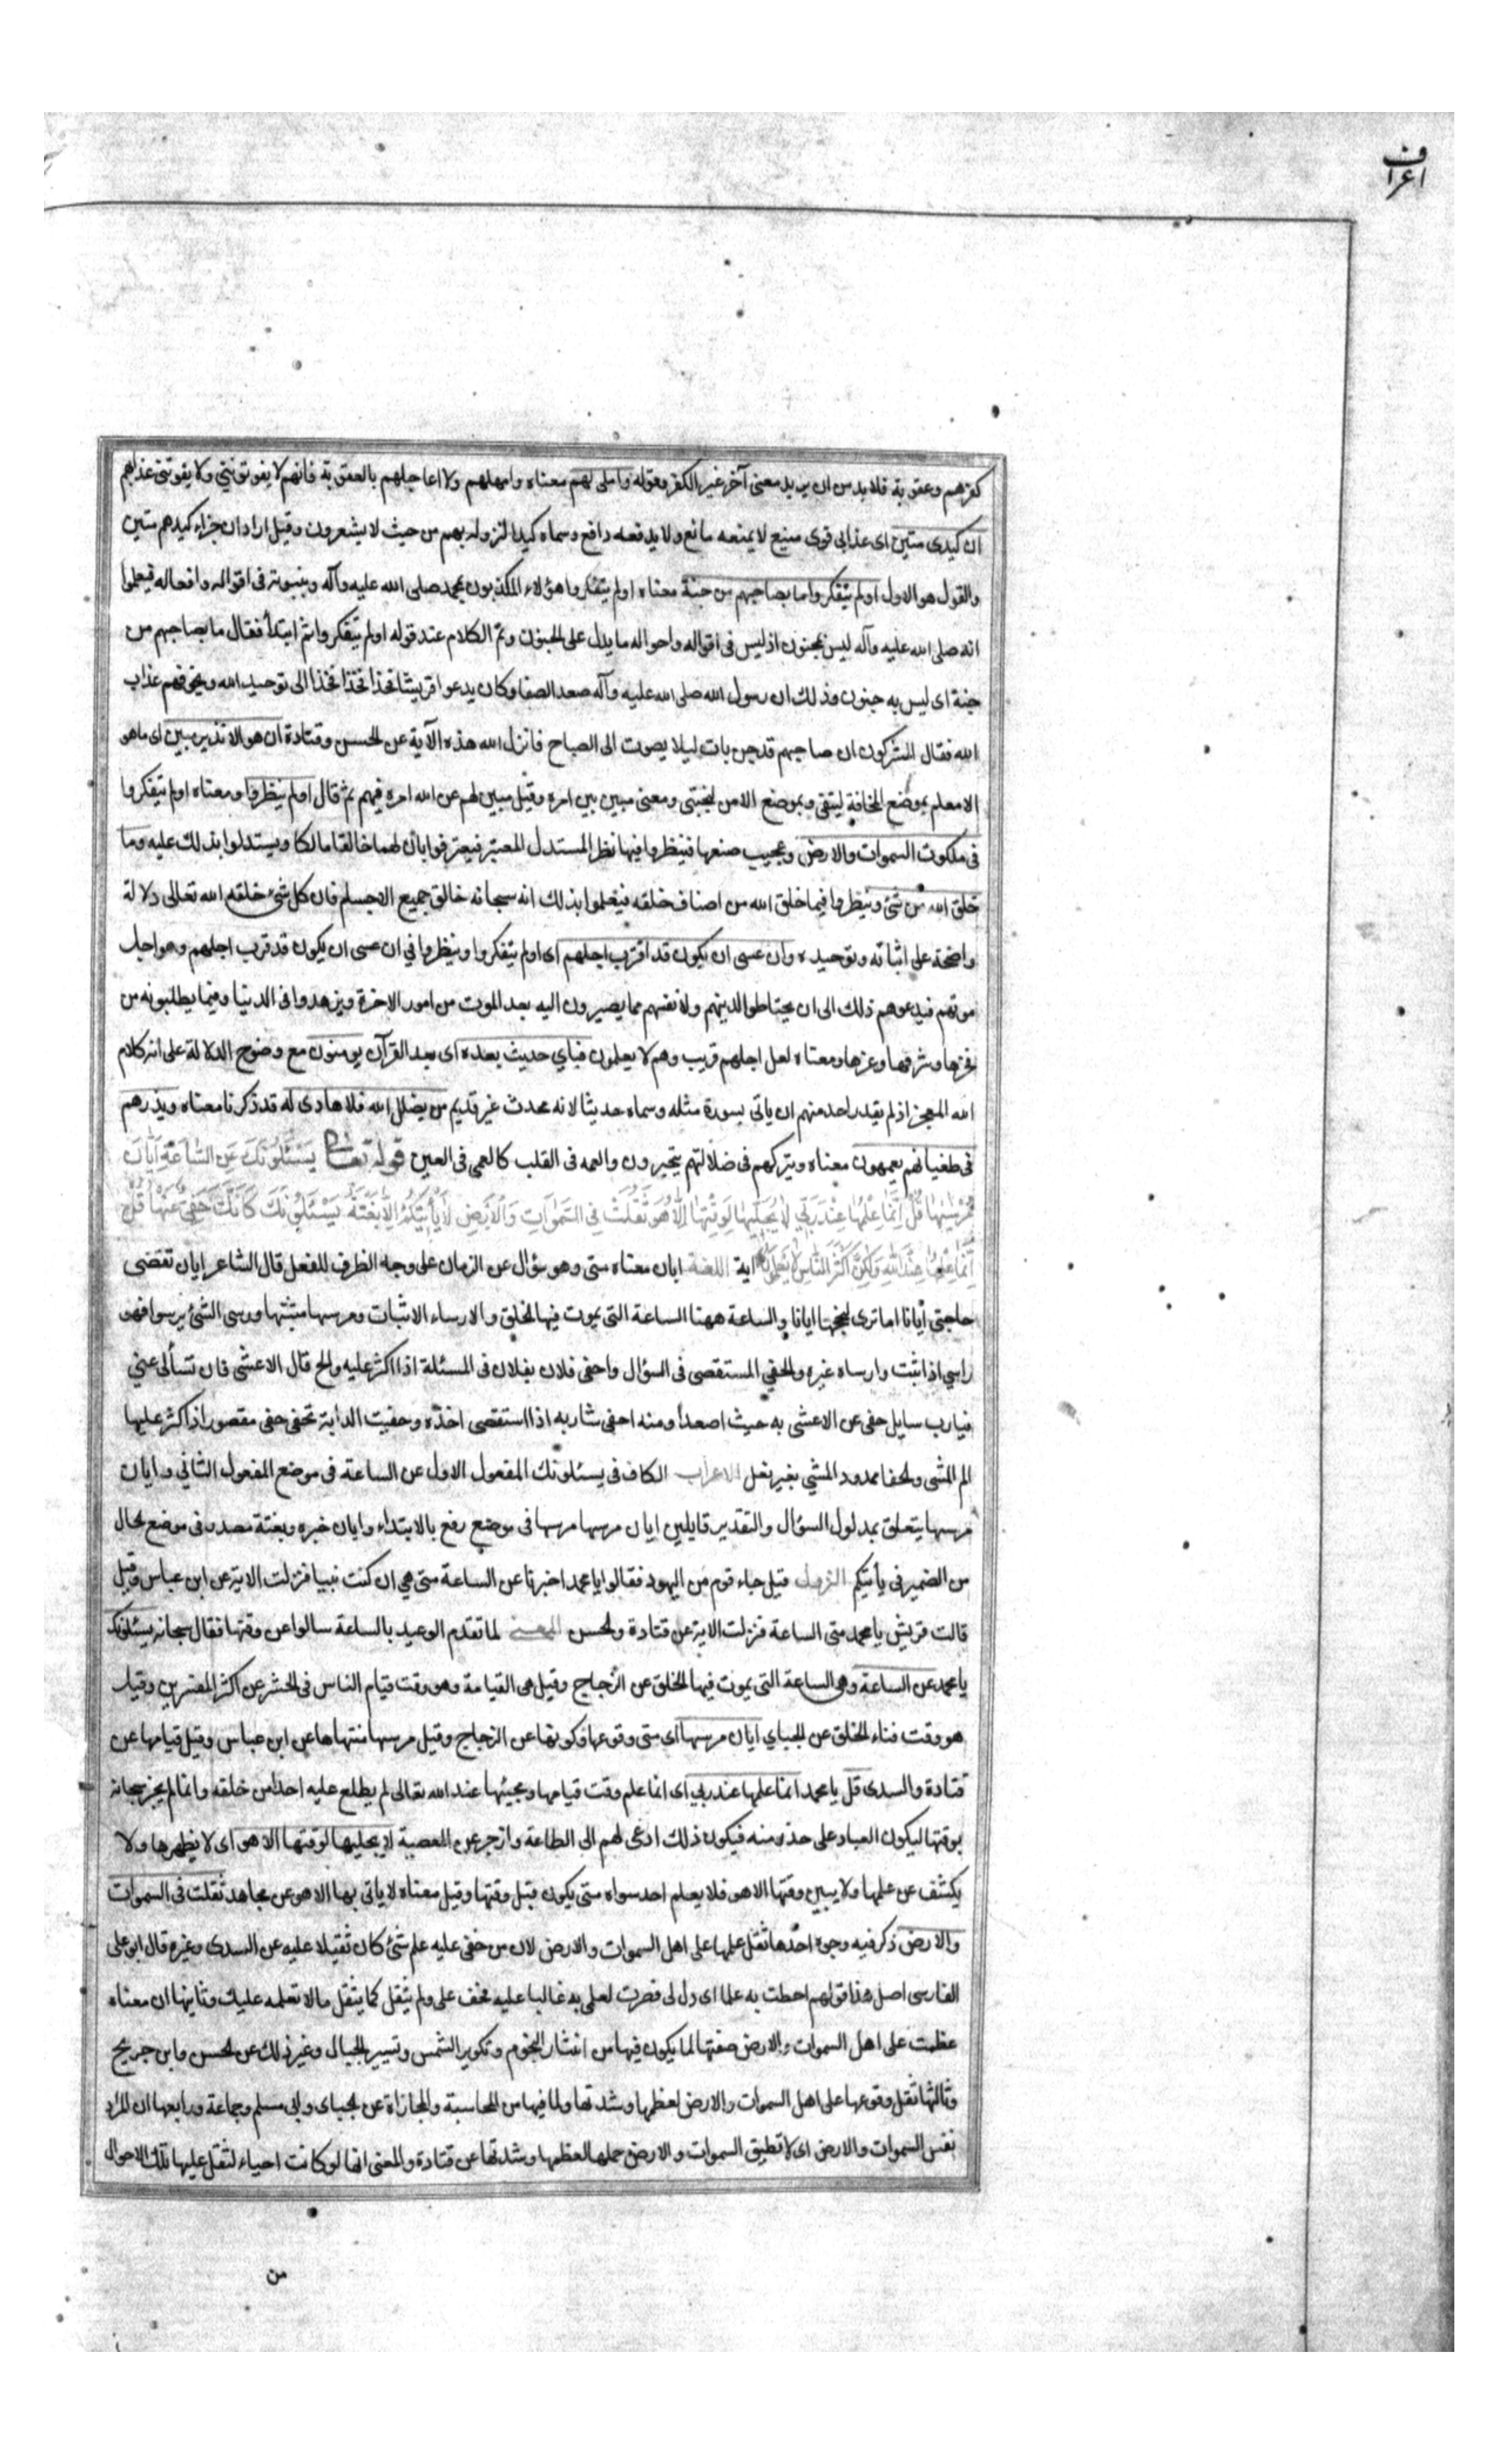 اعراف
كفرهم وعقوبة فلا بد من ان يريد معنى آخر غير الكفر وقوله واملى لهم معناه وامهلهم ولا اعاجلهم بالعقوبة فانهم لا يفوتونني ولا يفوتني عذابهم
ان كيدى متين اى عذابى قوى منيع لا يمنعه مانع ولا يدفعه دافع وسماه كيدا لنزوله بهم من حيث لا يشعرون وقيل اراد ان جزاء كيدهم متين
والقول هو الاول اولم يتفكروا ما بصاحبهم من جنة معناه اولم يتفكروا هؤلاء المكذبون بمحمد صلى الله عليه وآله وبنبوته فى اقواله وافعاله فيعلموا
انه صلى الله عليه وآله ليس بمجنون اذ ليس فى اقواله واحواله ما يدل على الجنون وتم الكلام عند قوله اولم يتفكروا ثم ابتدأ فقال ما بصاحبهم من
جنة اى ليس به جنون وذلك ان رسول الله صلى الله عليه وآله صعد الصفا وكان يدعو قريشا فخذا فخذا الى توحيد الله ويخوفهم عذاب
الله فقال المشركون ان صاحبهم قد جن بات ليلا يصوت الى الصباح فانزل الله هذه الآية عن الحسن وقتادة ان هو الا نذير مبين اى ما هو
الا معلم بموضع المخافة ليتقى وبموضع الامن ليجتبى ومعنى مبين بين امره وقيل مبين لهم عن الله امره فيهم ثم قال اولم ينظروا ومعناه اولم يتفكروا
فى ملكوت السموات والارض وعجيب صنعها فينظروا فيها نظر المستدل المعتبر فيعترفوا بان لهما خالقا مالكا ويستدلوا بذلك عليه وما
خلق الله من شئ وينظروا فيما خلق الله من اصناف خلقه فيعلموا بذلك انه سبحانه خالق جميع الاجسام فان كل شئ خلقه الله تعالى دلالة
واضحة على اثباته وتوحيده وان عسى ان يكون قد اقترب اجلهم اى اولم يتفكروا وينظروا في ان عسى ان يكون قد قرب اجلهم وهو اجل
موتهم فيدعوهم ذلك الى ان يحتاطوا لدينهم ولانفسهم مما يصيرون اليه بعد الموت من امور الاخرة ويزهدوا فى الدنيا وفيما يطلبونه من
فخرها وشرفها وعزها ومعناه لعل اجلهم قريب وهم لا يعلمون فباي حديث بعده اى بعد القرآن يومنون مع وضوح الدلالة على انه كلام
الله المعجز اذ لم يقدر احد منهم ان ياتى بسورة مثله وسماه حديثا لانه محدث غير قديم من يضلل الله فلا هادى له قد ذكرنا معناه ويذرهم
فى طغيانهم يعمهون معناه ويتركهم فى ضلالتهم يتحيرون والعمه فى القلب كالعمى فى العين قوله تعالى يَسْئَلُونَكَ عَنِ السَّاعَةِ اَيَّانَ
مُرْسٰيهَا قُلْ اِنَّمَا عِلْمُهَا عِنْدَ رَبّى لَا يُجَلِّيهَا لِوَقْتِهَا اِلَّا هُوَ ثَقُلَتْ فِى السَّمٰوَاتِ وَالْاَرْضِ لَا تَأْتِيكُمْ اِلَّا بَغْتَةً يَسْئَلُونَكَ كَاَنَّكَ حَفِىٌّ عَنْهَا قُلْ
اِنَّمَا عِلْمُهَا عِنْدَ اللّٰهِ وَلٰكِنَّ اَكْثَرَ النَّاسِ لَا يَعْلَمُونَ اية اللغة ايان معناه متى وهو سؤال عن الزمان على وجه الظرف للفعل قال الشاعر ايان تقضى
حاجتى أيانا اما ترى لنجحها ايانا والساعة ههنا الساعة التى يموت فيها الخلق والارساء الاثبات ومرسها مثبتها ورسى الشئ يرسوا فهو
راسي اذا ثبت وارساه غيره والحفي المستقصى فى السؤال واحفى فلان بفلان فى المسئلة اذا اكثر عليه والح قال الاعشى فان تسألى عني
فيا رب سايل حفى عن الاعشى به حيث اصعدا ومنه احفى شاربه اذا استقصى اخذه وحفيت الدابة تحفى حفى مقصور اذا كثر عليها
الم المشى والحفا ممدود المشي بغير نعل الاعراب الكاف فى يسئلونك المفعول الاول عن الساعة فى موضع المفعول الثانى وايان
مرسها يتعلق بمدلول السؤال والتقدير قايلين ايان مرسها مرسها فى موضع رفع بالابتداء وايان خبره وبغتة مصدر فى موضع الحال
من الضمير فى يأتيكم النزول قيل جاء قوم من اليهود فقالوا يا محمد اخبرنا عن الساعة متى هى ان كنت نبيا فنزلت الاية عن ابن عباس وقيل
قالت قريش يا محمد متى الساعة فنزلت الاية عن قتادة والحسن المعنى لما تقدم الوعيد بالساعة سالوا عن وقتها فقال سبحانه يسئلونك
يا محمد عن الساعة وهى الساعة التى يموت فيها الخلق عن الزجاج وقيل هى القيامة وهو وقت قيام الناس فى الحشر عن اكثر المفسرين وقيل
هو وقت فناء الخلق عن الجباي ايان مرسها اى متى وقوعها وكونها عن الزجاج وقيل مرسها منتهاها عن ابن عباس وقيل قيامها عن
قتادة والسدى قل يا محمد انما علمها عند ربي اى انما علم وقت قيامها ومجيئها عند الله تعالى لم يطلع عليه احدا من خلقه وانما لم يخبر سبحانه
بوقتها ليكون العباد على حذر منه فيكون ذلك ادعى لهم الى الطاعة وازجر عن المعصية لا يجليها لوقتها الا هو اى لا يظهرها ولا
يكشف عن علمها ولا يبين وقتها الا هو فلا يعلم احد سواه متى يكون قبل وقتها وقيل معناه لا ياتى بها الا هو عن مجاهد ثقلت فى السموات
والارض ذكر فيه وجوه احدها ثقل علمها على اهل السموات والارض لان من خفى عليه علم شئ كان ثقيلا عليه عن السدى وغيره قال ابو على
الفارسى اصل هذا قولهم احطت به علما اى ذل لى فصرت لعلمى به غالبا عليه فخف على ولم يثقل كما يثقل ما لا تعلمه عليك وثانيها ان معناه
عظمت على اهل السموات والارض صفتها لما يكون فيها من انتثار النجوم وتكوير الشمس وتسيير الجبال وغير ذلك عن الحسن وابن جريج
وثالثها ثقل وقوعها على اهل السموات والارض لعظمها وشدتها ولما فيها من المحاسبة والمجازاة عن الجباى وابى مسلم وجماعة ورابعها ان المراد
نفس السموات والارض اى لا تطيق السموات والارض حملها لعظمها وشدتها عن قتادة والمعنى انها لو كانت احياء لثقل عليها تلك الاحوال
من